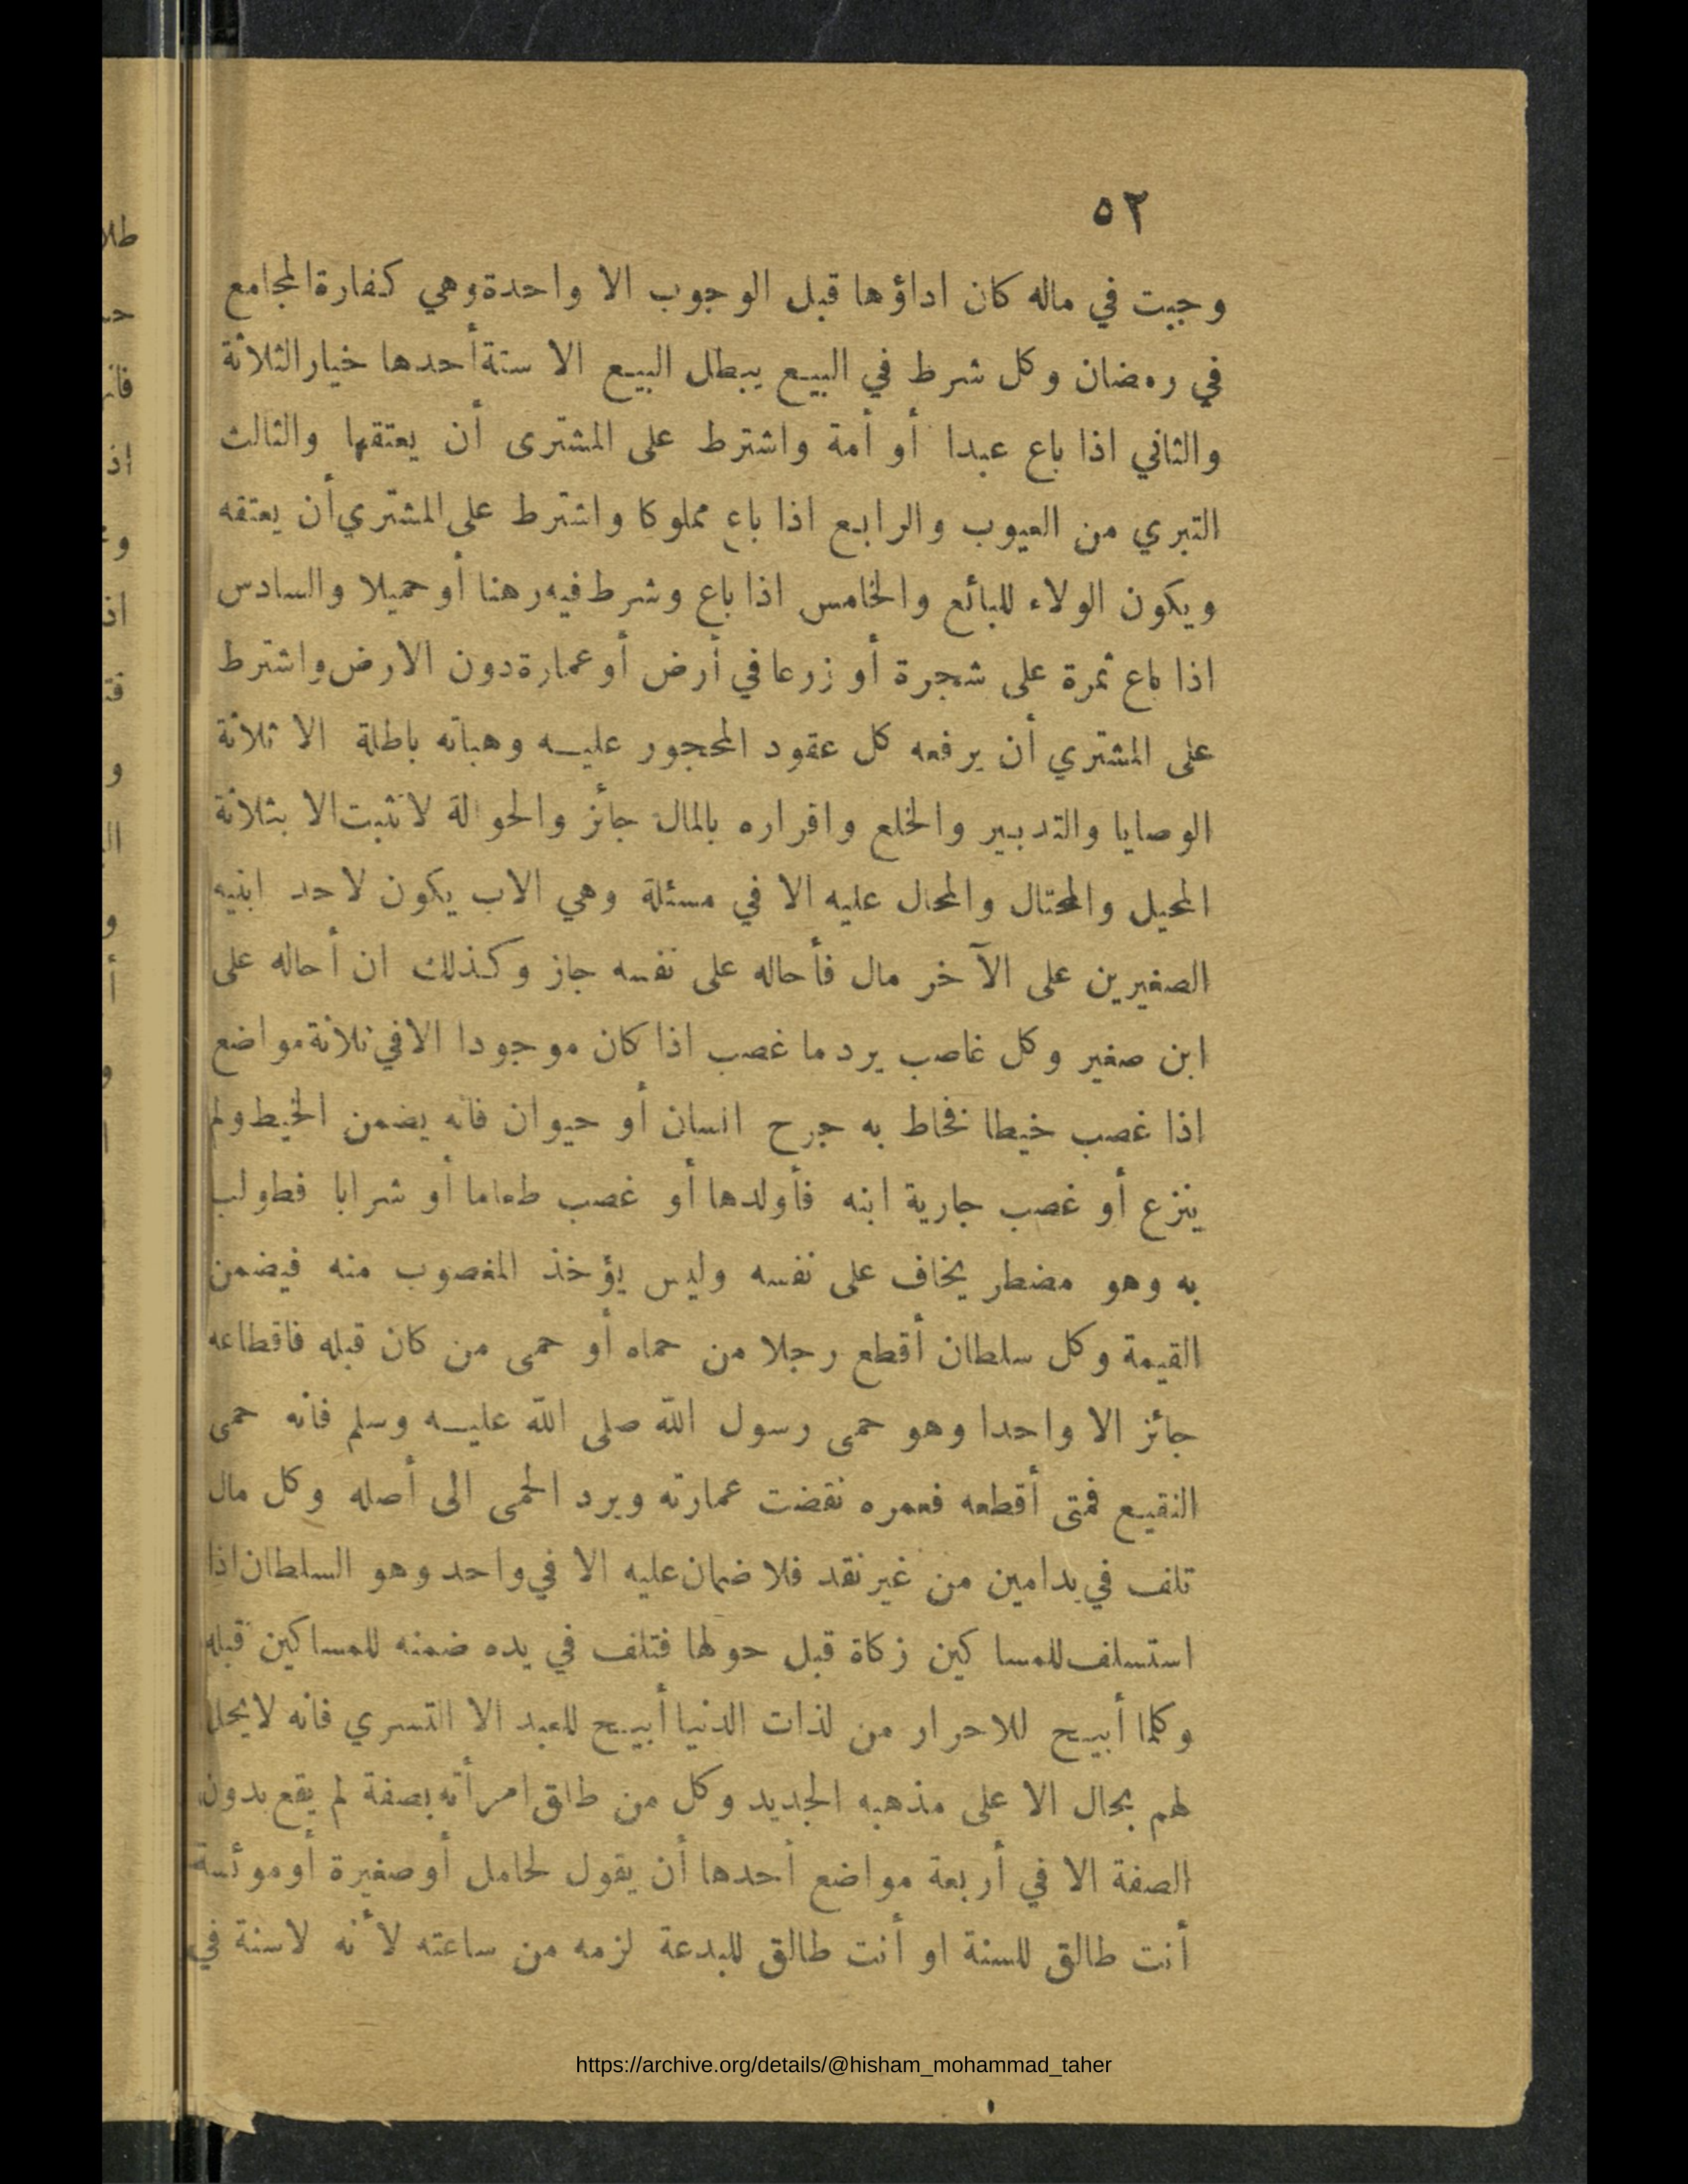 ٥٢
وجبت في ماله كان اداؤها قبل الوجوب الا واحدة وهي كفارة المجامع
في رمضان وكل شرط في البيع يبطل البيع الا ستة أحدها خيار الثلاثة
والثاني اذا باع عبدا أو أمة واشترط على المشترى أن يعتقها والثالث
التبري من العيوب والرابع اذا باع مملوكا واشترط على المشتري أن يعتقه
ويكون الولاء للبائع والخامس اذا باع وشرط فيه رهنا أو حميلا والسادس
اذا باع ثمرة على شجرة أو زرعا في أرض أو عمارة دون الارض واشترط
على المشتري أن يرفعه كل عقود المحجور عليه وهباته باطلة الا ثلاثة
الوصايا والتدبير والخلع واقراره بالمال جائز والحوالة لا تثبت الا بثلاثة
المحيل والمحتال والمحال عليه الا في مسئلة وهي الاب يكون لاحد ابنيه
الصغيرين على الآخر مال فأحاله على نفسه جاز وكذلك ان أحاله على
ابن صغير وكل غاصب يرد ما غصب اذا كان موجودا الا في ثلاثة مواضع
اذا غصب خيطا فخاط به جرح انسان أو حيوان فانه يضمن الخيط ولم
ينزع أو غصب جارية ابنه فأولدها أو غصب طعاما أو شرابا فطولب
به وهو مضطر يخاف على نفسه وليس يؤخذ المغصوب منه فيضمن
القيمة وكل سلطان أقطع رجلا من حماه أو حمى من كان قبله فاقطاعه
جائز الا واحدا وهو حمى رسول الله صلى الله عليه وسلم فانه حمى
النقيع فمتى أقطعه فعمره نقضت عمارته ويرد الحمى الى أصله وكل مال
تلف في يد امين من غير نقد فلا ضمان عليه الا في واحد وهو السلطان اذا
استسلف للمساكين زكاة قبل حولها فتلف في يده ضمنه للمساكين قبله
وكلما أبيح للاحرار من لذات الدنيا أبيح للعبد الا التسري فانه لا يحل
لهم بحال الا على مذهبه الجديد وكل من طلق امرأته بصفة لم يقع بدون
الصفة الا في أربعة مواضع أحدها أن يقول لحامل أو صغيرة أو موئسة
أنت طالق للسنة او أنت طالق للبدعة لزمه من ساعته لأنه لا سنة في
https://archive.org/details/@hisham_mohammad_taher